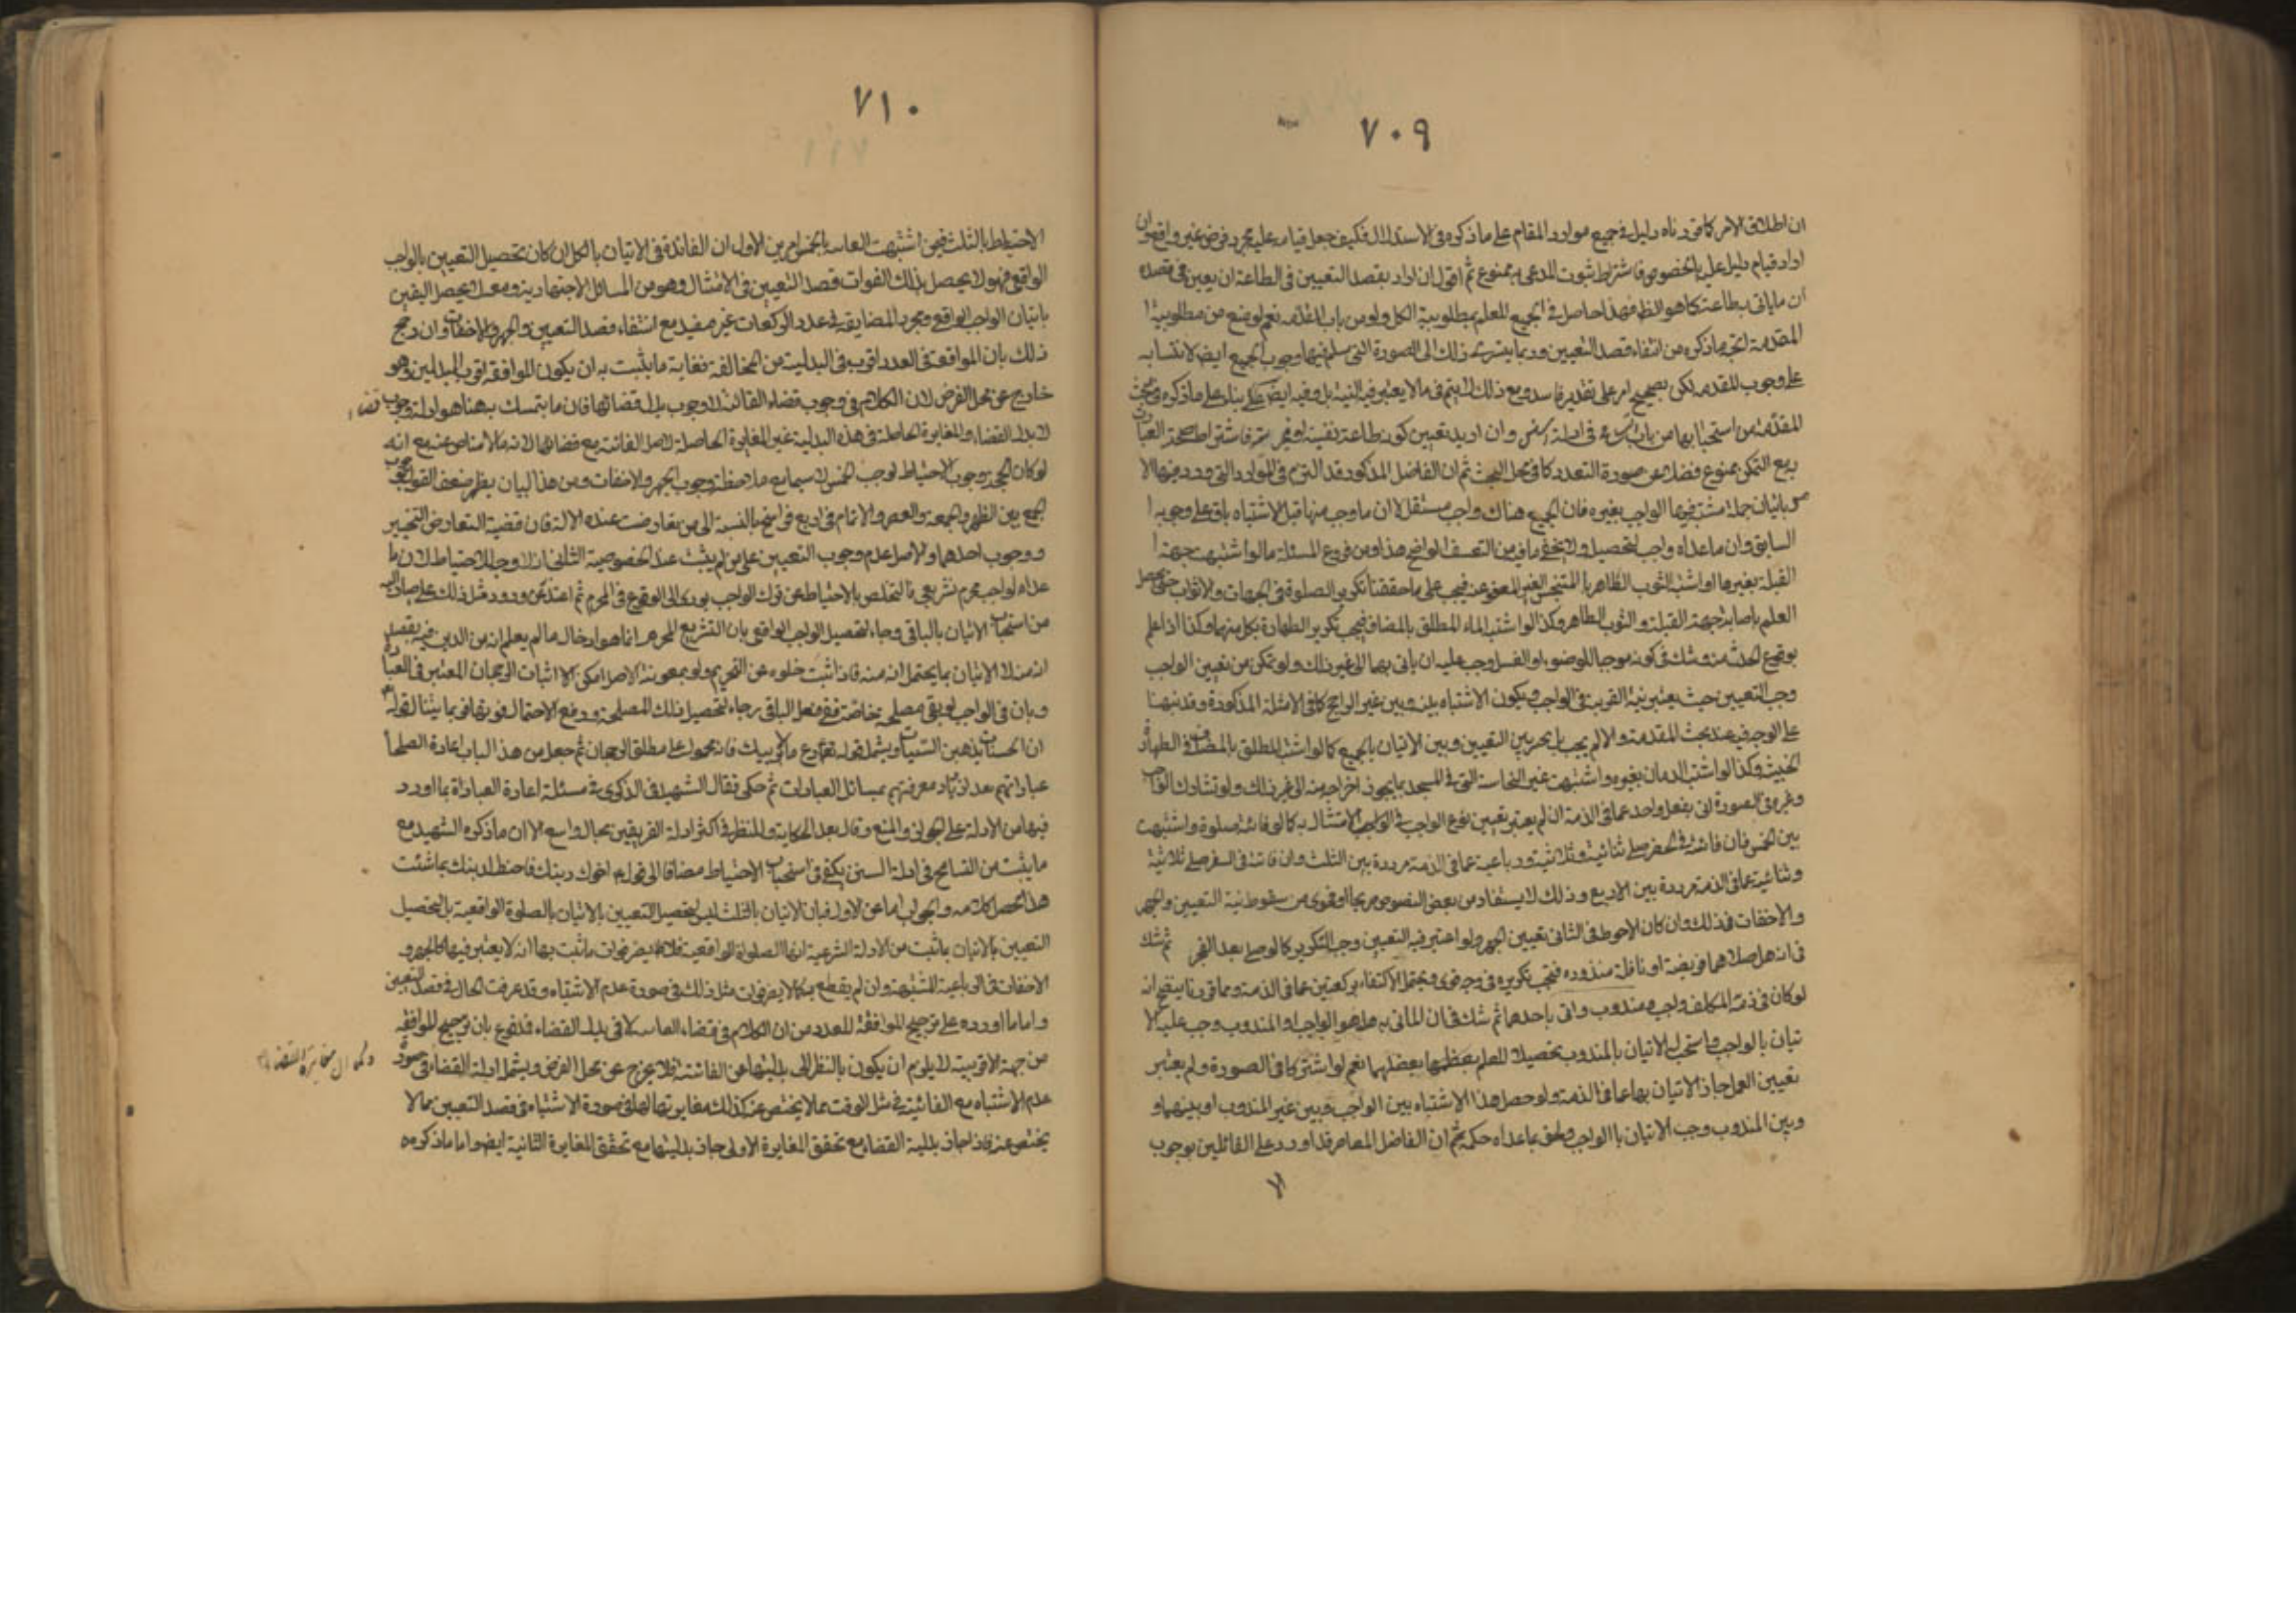 ٧٠٩
ان اطلاق الامر كما قررناه دليل في جميع موارد المقام على ما ذكره في الاستدلال فكيف جعل قيامه عليه مجرد فرض غير واقع وان
اراد قيام دليل عليه بالخصوص فاشتراط ثبوت المدعى به ممنوع ثم اقول ان اراد بقصد التعيين في الطاعة ان يعين في قصده
ان ما ياتى به طاعة كما هو الظ فهذا حاصل في الجميع للعلم بمطلوبية الكل ولو من باب المقدمة نعم لو منع من مطلوبية
المقدمة اتجه ما ذكره من انتفاء قصد التعيين وربما يتسرى ذلك الى الصورة التى سلم فيها وجوب الجميع ايضا لابتنائه
على وجوب المقدمة لكن يصحح امر على تقدير فاسد ومع ذلك لا يتم في ما لا يعتبر فيه النية بل وفيه ايضا بناء على ما ذكره في بحث
المقدمة من استحبابها من باب في ادلة السنن وان اريد تعيين كونه طاعة نفسية او غيرية فاشتراط صحة العبادة
مع التمكن ممنوع فضلا عن صورة التعدد كما في محل البحث ثم ان الفاضل المذكور قد التزم في الموارد التى ورد فيها الامر
باتيان جملة مشتبه فيها الواجب بغيره فان الجميع هناك واجب مستقل لا ان ما وجب منها قبل الاشتباه باق على وجوبه
السابق وان ما عداه واجب لتحصيله ولا يخفى ما فيه من التعسف الواضح هذا ومن فروع المسئلة ما لو اشتبهت جهة
القبلة بغيرها او اشتبه الثوب الطاهر بالمتنجس الغير المعفو عنه فيجب على ما حققنا تكرير الصلوة في الجهات والاثواب حتى يحصل
العلم باصابة جهة القبلة والثوب الطاهر وكذا لو اشتبه الماء المطلق بالمضاف فيجب تكرير الطهارة بكل منهما وكذا اذا علم
بوقوع الحدث منه وشك في كونه موجبا للوضوء او الغسل وجب عليه ان ياتى بهما الى غير ذلك ولو تمكن من تعيين الواجب
وجب التعيين حيث يعتبر نية القربة في الواجب ويكون الاشتباه بينه وبين غير الراجح كما في الامثلة المذكورة وقد نبهنا
على الوجه فيه عند بحث المقدمة والا لم يجب بل يخير بين التعيين وبين الاتيان بالجميع كما لو اشتبه المطلق بالمضاف في الطهارة
الخبثية وكذا لو اشتبه الدمان بغيره او اشتبهت عين النجاسة التى في المسجد بما يجوز اخراجه منه الى غير ذلك ولو تشارك الواجب
وغيره في الصورة اتى بفعل واحد عما في الذمة ان لم يعتبر تعيين نوع الواجب في الامتثال به كما لو فاتته صلوة واشتبهت
بين الخمس فان فاتته في الحضر صلى ثنائية وثلاثية ورباعية عما في الذمة مرددة بين الثلث وان فاتته في السفر صلى ثلاثية
وثنائية عما في الذمة مرددة بين الاربع وذلك لا يستفاد من بعض النصوص صريحا او فحوى من سقوط نية التعيين والجهر
والاخفات فذلك وان كان الاحوط في الثانى تعيين الجهر ولو اعتبر فيه التعيين وجب التكرير كما لو صلى بعد الفجر ثم شك
في انه هل صلاهما فريضة او نافلة منذورة فيجب تكريره في وجه قوى ويحتمل الاكتفاء بركعتين عما في الذمة ومما قررنا ينقدح انه
لو كان في ذمة المكلف واجب ومندوب واتى باحدهما ثم شك في ان الماتى به هل هو الواجب او المندوب وجب عليه الا
تيان بالواجب واستحب له الاتيان بالمندوب تحصيلا للعلم نعم لو اشتركا في الصورة ولم يعتبر
تعيين العمل جاز الاتيان بها عما في الذمة ولو حصل هذا الاشتباه بين الواجب وبين غير المندوب او بينهما و
وبين المندوب وجب الاتيان بالواجب ولحق ما عداه حكمه ثم ان الفاضل المعاصر قد اورد على القائلين بوجوب
٧١٠
الاحتياط بالثلث فيمن اشتبهت الفائتة بالخمس امرين الاول ان الفائدة في الاتيان بالكل ان كان تحصيل التعيين بالواجب
الواقعى فهو لا يحصل بذلك لفوات قصد التعيين في الامتثال وهو من المسائل الاجتهادية ومعه لا يحصل اليقين
باتيان الواجب الواقعى ومجرد المضايقة في عدد الركعات غير مفيد مع انتفاء قصد التعيين والجهر والاخفات وان رجح
ذلك بان الموافقة في العدد اقرب في البدلية من المخالفة فغاية ما يثبت به ان يكون الموافقة اقرب البدلين وهو
خارج عن محل الفرض لان الكلام في وجوب قضاء الفائتة لا وجوب بدل قضائها فان ما يتمسك به هنا هو ادلة وجوب قضاء
لا بدل القضاء والمغايرة الحاصلة في هذه البدلية غير المغايرة الحاصلة لاصل الفائتة مع قضائها لانه مما لا مناص عنه مع انه
لو كان المتجه وجوب الاحتياط لوجب الخمس لا سيما مع ملاحظة وجوب الجهر والاخفات ومن هذا البيان يظهر ضعف القول بوجوب
الجمع بين الظهر والجمعة والقصر والاتمام في اربع فراسخ بالنسبة الى من تعارضت عنده الادلة فان قضية التعارض التخيير
ووجوب احدهما والاصل عدم وجوب التعيين على من لم يثبت عنده الخصوصية الثانى ان لا وجه للاحتياط لان ما
عدا الواجب محرم تشريعى فالتخلص بالاحتياط عن ترك الواجب يؤدى الى الوقوع في المحرم ثم اعتذر عن ورود مثل ذلك على ما صار اليه
من استحباب الاتيان بالباقى رجاء لتحصيل الواجب الواقعى بان التشريع المحرم انما هو ادخال ما لم يعلم انه من الدين فيه بقصد
انه منه لا الاتيان بما يحتمل انه منه فاذا ثبت خلوه عن التحريم ولو بمعونة الاصل امكن الاثبات الرجحان المعتبر في العبادة
وبان في الواجب الواقعى مصلحة خاصة ففى فعل الباقى رجاء لتحصيل تلك المصلحة ودفع الاحتمال فوتها فربما يتناوله قوله تعالى
ان الحسنات يذهبن السيئات ويشمله قوله دع ما يريبك الى ما لا يريبك فانه محمول على مطلق الرجحان ثم جعل من هذا الباب اعادة الصلحاء
عباداتهم بعد ازدياد معرفتهم بمسائل العبادات ثم حكى فقال الشهيد في الذكرى في مسئلة اعادة العبادة بما اورد
فيها من الادلة على الجواز والمنع وقال بعد الحكاية وللنظر في اكثر ادلة الفريقين مجال واسع الا ان ما ذكره الشهيد مع
ما يثبت من التسامح في ادلة السنن يكفى في استحباب الاحتياط مضافا الى قوله ع اخوك دينك فاحتط لدينك بما شئت
هذا محصل كلامه والجواب اما عن الاول فبان الاتيان بالثلث ليس لتحصيل التعيين بالاتيان بالصلوة الواقعية بل لتحصيل
التعيين بالاتيان بما ثبت من الادلة الشرعية انها الصلوة الواقعية فلا يضر فوات ما ثبت بها انه لا يعتبر فيها كالجهر و
الاخفات في الرباعية المشتبهة وان لم يقطع به كما لا يضر فوات مثل ذلك في صورة عدم الاشتباه وقد عرفت الحال في قصد التعيين
واما ما اورده على ترجيح الموافقة للعدد من ان الكلام في قضاء الفائتة لا في بدل القضاء فمدفوع بان ترجيح الموافقة
من جهة الاقربية لا يلزم ان يكون بالنظر الى بدليتها عن الفائتة فلا يخرج عن محل الفرض ويشمله ادلة القضاء في صورة
عدم الاشتباه مع الفائتة في مثل الوقت مما لا يختص عنه كذلك مغايرتها لها في صورة الاشتباه في قصد التعيين مما لا
يختص عنه فاذا جاز بدلية القضاء مع تحقق المغايرة الاولى جاز بدليتها مع تحقق المغايرة الثانية ايضا واما ما ذكره